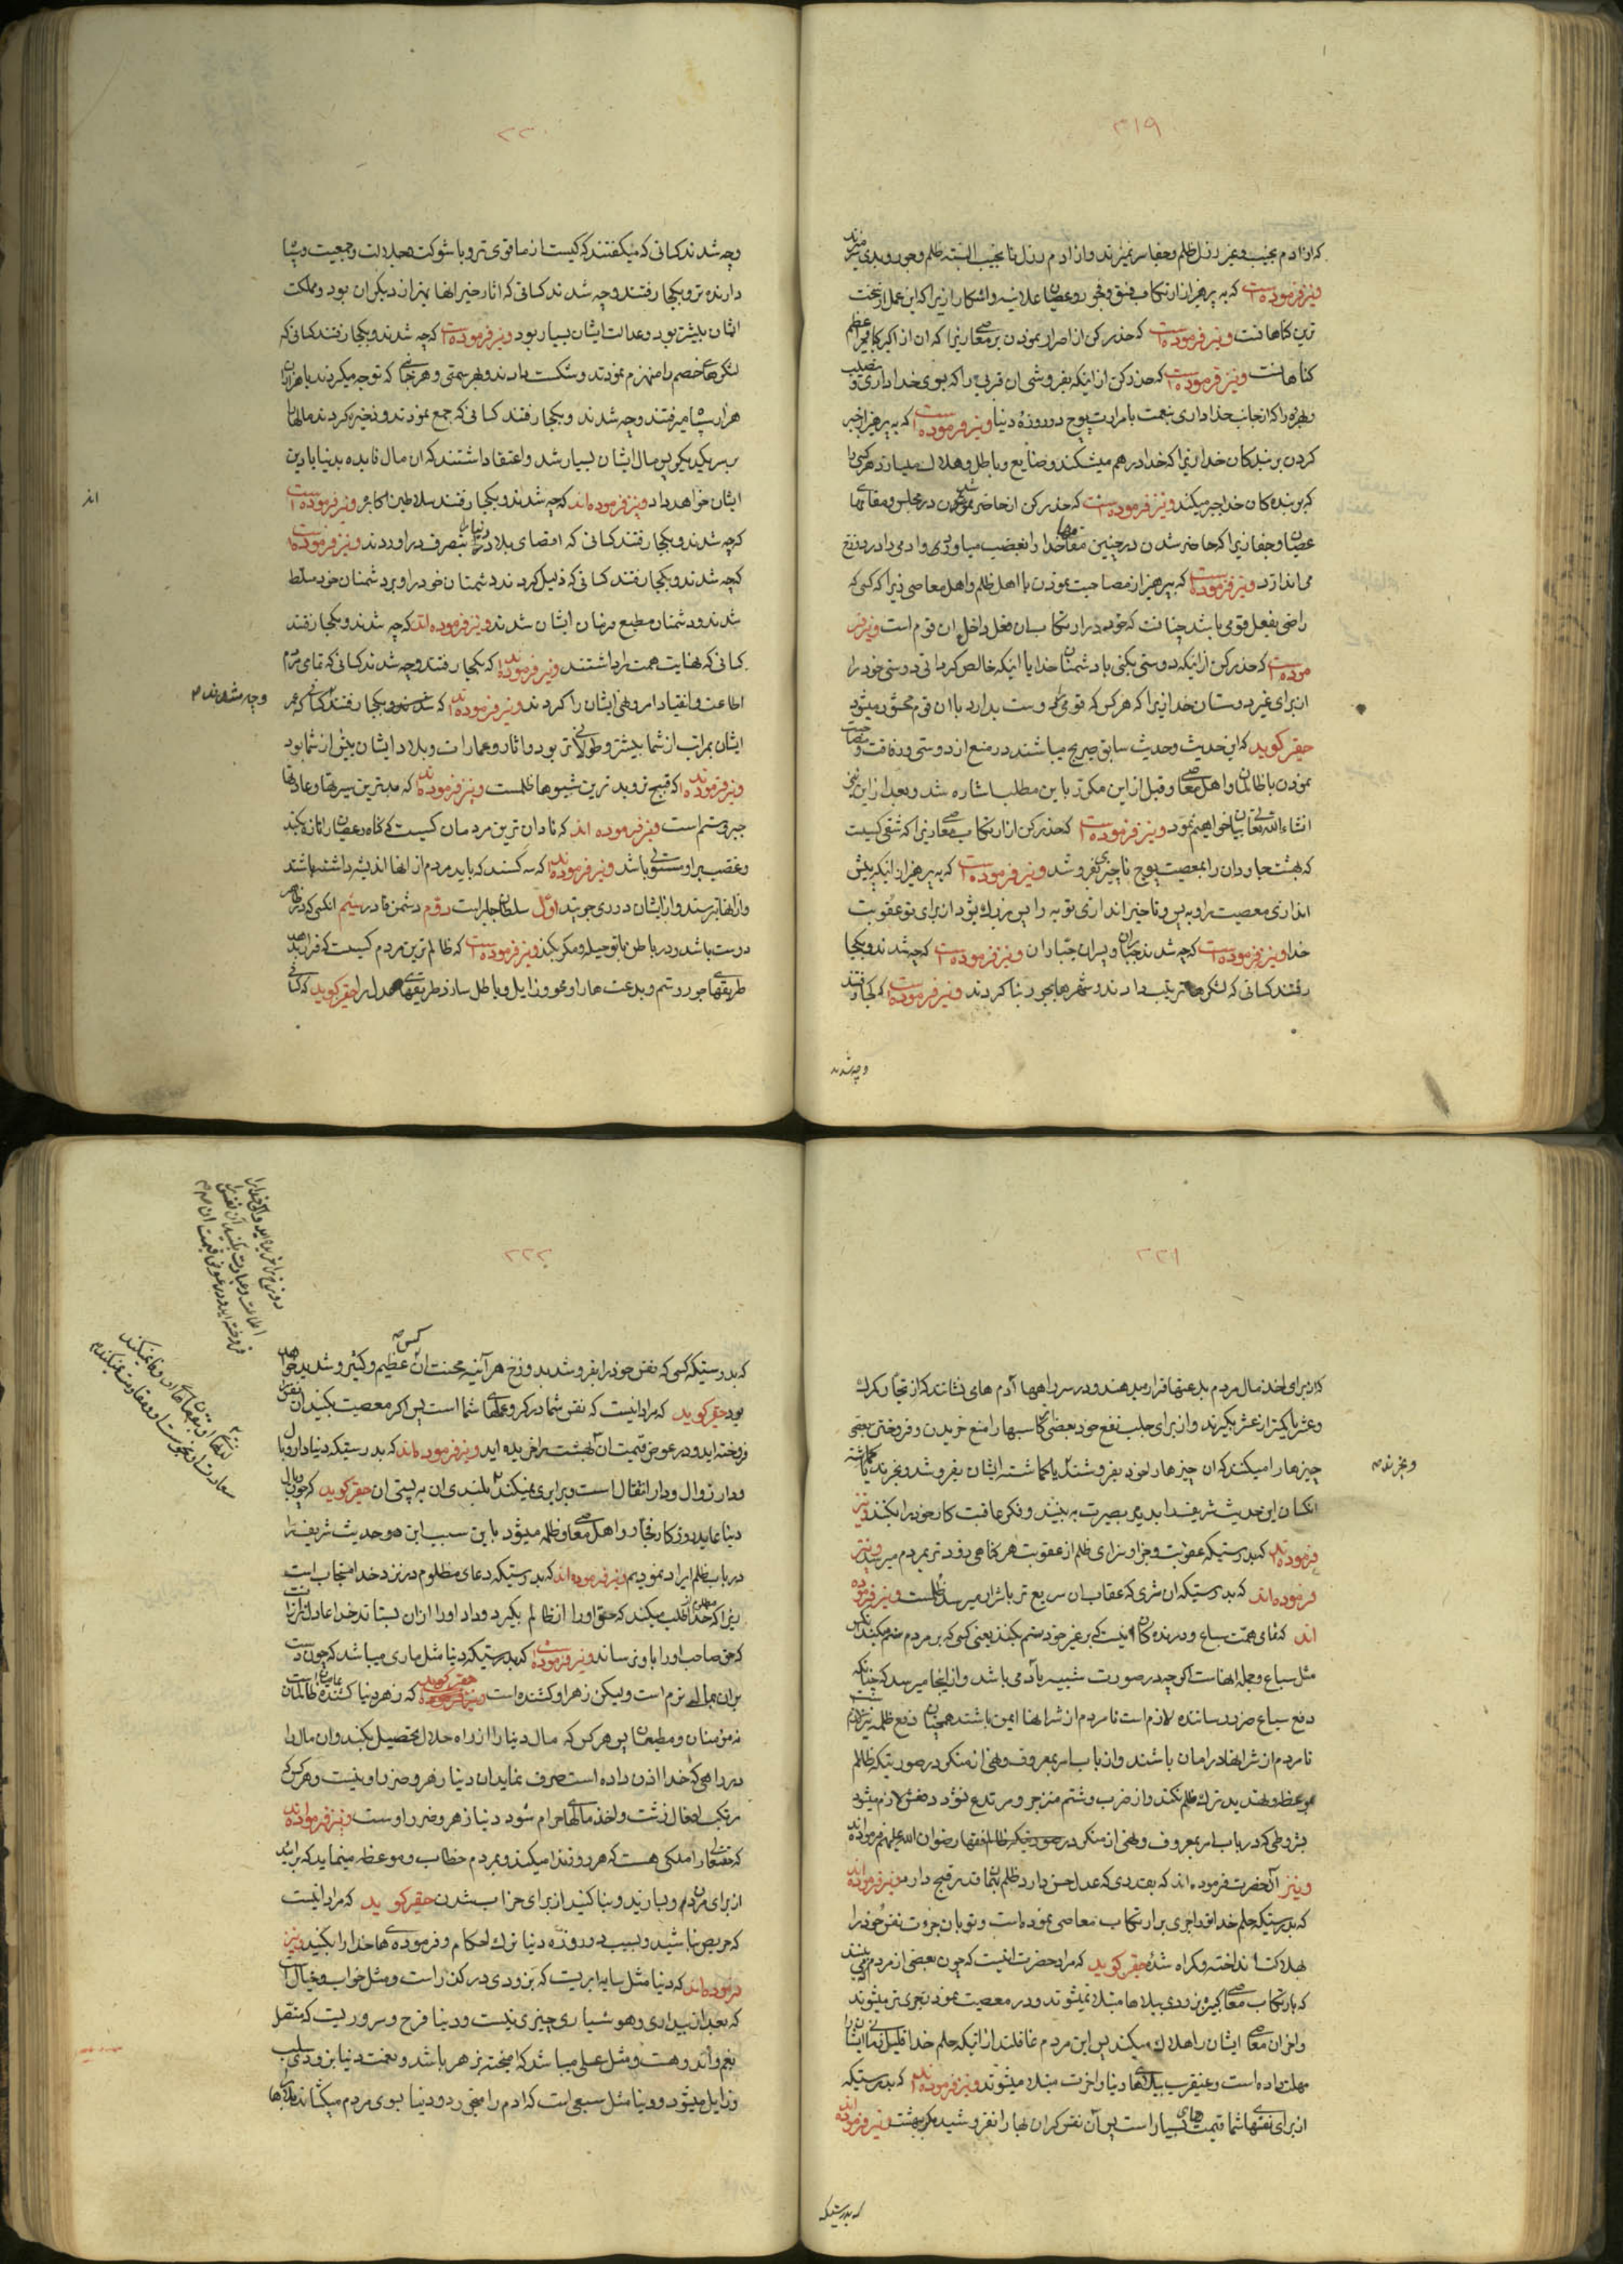 ۲۱۹
که از آدم نجیب و غیر رذل ظلم و جفا سر نمیزند و از ادم رذل نا نجیب البته ظلم و جور و بدی سر میزند
و نیز فرموده است که به پرهیز از ارتکاب فسق و فجور و عصیان علانیه و اشکارا زیرا که این عمل از سخت
ترین کناهانست و نیز فرموده است که حذر کن از اصرار نمودن بر معاصی زیرا که ان از اکبر کبایر و اعظم
کناهانست و نیز فرموده است که حذر کن از اینکه بفروشی ان قربی را که بسوی خدا داری و نصیب
و بهره را که از جانب خدا داری بنعمت با مرارت پوچ دو روزهٔ دنیا و نیز فرموده است که به پرهیز از جبر
کردن بر بندکان خدا زیرا که خدا درهم میشکند و ضایع و باطل و هلاک میسازد هر کسی را
که بر بنده کان خدا جبر میکند و نیز فرموده است که حذر کن از حاضر شدن در مجلس و مقامهای
عصیان و جفا زیرا که حاضر شدن در چنین مقامها خدا را بغضب میاورد و ادمی را در دوزخ
می اندازد و نیز فرموده است که بپرهیز از مصاحبت نمودن با اهل ظلم و اهل معاصی زیرا که کسی که
راضی بفعل قومی باشد چنانست که خود در ارتکاب ان فعل داخل ان قوم است و نیز فر
موده است که حذر کن از اینکه دوستی بکنی با دشمنان خدا یا اینکه خالص کردانی دوستی خود را
از برای غیر دوستان خدا زیرا که هر کس که قومی را دوست بدارد با ان قوم محشور میشود
حقیر کوید که این حدیث و حدیث سابق صریح میباشند در منع از دوستی و رفاقت و مصاحبت
نمودن با ظالمان و اهل معاصی و قبل از این مکرر باین مطلب اشاره شد و بعد از این نیز
انشاءالله تعالی بیان خواهیم نمود و نیز فرموده است که حذر کن از ارتکاب معاصی زیرا که شقی کسیست
که بهشت جاودان را بمعصیت پوچ ناچیزی بفروشد و نیز فرموده است که به پرهیز از اینکه پیش
اندازی معصیت را و به پس و تاخیر اندازی توبه را پس بزرک شود از برای تو عقوبت
خدا و نیز فرموده است که چه شدند جباران و پسران جباران و نیز فرموده است که چه شدند و بکجا
رفتند کسانی که لشکرها ترتیب دادند و شهرها بجور بنا کردند و نیز فرموده است که کجا رفتند
وچه شدند
۲۲۰
وچه شدند کسانی که میکفتند که کیست از ما قوی تر و با شوکت و جلالت و جمعیت و سپاه
دارنده تر و بکجا رفتند و چه شدند کسانی که اثار خیر انها بهتر از دیکران بود و مملکت
ایشان بیشتر بود و عدالت ایشان بسیار بود و نیز فرموده است که چه شدند و بکجا رفتند کسانی که
لشکرهای خصم را منهزم نمودند و شکست دادند و بهر سمتی و هر جانبی که توجه میکردند با هزاران
هزار سپاه میرفتند و چه شدند و بکجا رفتند کسانی که جمع نمودند و ذخیره کردند مالها
بر سر یکدیکر پس مال ایشان بسیار شد و اعتقاد داشتند که ان مال فایده بدنیا یا دین
ایشان خواهد داد و نیز فرموده اند که چه شدند و بکجا رفتند سلاطین اکابر و نیز فرموده است
که چه شدند و بکجا رفتند کسانی که اقصای بلاد دنیا را بتصرف در اوردند و نیز فرموده است
که چه شدند و بکجا رفتند کسانی که ذلیل کردند دشمنان خود را و بر دشمنان خود مسلط
شدند و دشمنان مطیع فرمان ایشان شدند و نیز فرموده اند که چه شدند و بکجا رفتند
کسانی که نهایت همت را داشتند و نیز فرموده اند که بکجا رفتند و چه شدند کسانی که تمامی مردم
اطاعت و انقیاد امر و نهی ایشان را کردند و نیز فرموده اند که بکجا رفتند کسانی که عمر
وچه شدند صح
ایشان بمراتب از شما بیشتر و طولانی تر بود و اثار و عمارات و بلاد ایشان بیش از شما بود
و نیز فرموده اند که قبیح ترو بدترین شیوها ظلمست و نیز فرموده اند که بدترین سیرتها و عادتها
جبر و ستم است و نیز فرموده اند که نادان ترین مردمان کسیست که کناه و عصیان را تازه بکند
و غضب بر او مستولی باشد و نیز فرموده اند که سه کسند که باید مردم از انها اندیشه داشته باشند
و از انها بترسند و از ایشان دوری جویند اول سلطان جابر است دوم دشمن قادر سیم انکسی که در ظاهر
دوست باشد و در باطن با تو حیله و مکر بکند و نیز فرموده است که ظالم ترین مردم کسیست که قرار بدهد
طریقهای جور و ستم و بدعت ها را و محو و زایل و باطل سازد طریقهای عدل را حقیر کوید که کسانی
۲۲۱
که از برای اخذ مال مردم بدعتها قرار میدهند و در سر راهها آدم های نشانند که از تجار کمرک
و عشر یا کمتر از عشر بکیرند و از برای جلب نفع خود بعضی کاسبها را منع خریدن و فروختن بعضی
چیزها را میکنند که ان چیزها را خود بفروشند یا کماشته ایشان بفروشد و بخرند یا کماشته
و بخرند صح
انکسان این حدیث شریف را بدیده بصیرت به بینند و فکر عاقبت کار خود را بکنند و نیز
فرموده اند که بدرستیکه عقوبت و جزا و سزای ظلم از عقوبت هر کناهی زودتر بمردم میرسد و نیز
فرموده اند که بدرستیکه ان شری که عقاب ان سریع تر باثر ان میرسد ظلمست و نیز فرموده
اند که تمامی همت سباع و درنده کان اینست که بر غیر خود ستم بکنند یعنی کسی که بر مردم ستم میکند انکس
مثل سباع و جمله انهاست اکر چه در صورت شبیه بآدمی باشد و از اینجا میرسد که چنانکه
دفع سباع ضرر رساننده لازم است تا مردم از شر انها ایمن باشند همچنان دفع ظلمه نیز لازم
تا مردم از شر انها در امان باشند و از باب امر بمعروف و نهی از منکر در صورتیکه ظالم
بوعظ و تهدید ترک ظلم نکند و از ضرب و شتم منزجر و مرتدع نشود دفعش لازم میشود
بشروطی که در باب امر بمعروف و نهی از منکر فقها رضوان الله علیهم فرموده اند
و نیز آنحضرت فرموده اند که بقدری که عدل حسن دارد ظلم بهمان قدر قبح دارد و نیز فرموده اند
که بدرستیکه حلم خدا تو را جری بر ارتکاب معاصی نموده است و تو بان جرءت نفس خود را
بهلاکت انداخته و کمراه شدهٔ حقیر کوید که مراد حضرت اینست که چون بعضی از مردم می بینند
که بارتکاب معاصی کبیره بزودی ببلاها مبتلا نمیشوند و در معصیت نمودن جری تر میشوند
و اخر ان معاصی ایشان را هلاک میکند پس این مردم غافلند از اینکه حلم خدا قلیل زمانی ایشان را
مهلت داده است و عنقریب ببلاهای دنیا و اخرت مبتلا میشوند و نیز فرموده اند که بدرستیکه
از برای نفسهای شما قیمت های بسیار است پس آن نفس کران بها را نفروشید مکر ببهشت و نیز فرموده اند
که بدرستیکه
۲۲۲
که بدرستیکه کسی که نفس خود را بفروشد بدوزخ هر آینه محنت ان کس عظیم و کثیر و شدید خواهد
بود حقیر کوید که مراد اینست که نفس شما در کرو عملهای شما است پس اکر معصیت بکنید ان نفس را
فروخته اید و در عوض قیمت ان بهشت را خریده اید و نیز فرموده اند که بدرستیکه دنیا دار وبا
و دار زوال و دار انتقال است و برابری نمیکند بلندی ان به پستی ان حقیر کوید که چون وبال
دنیا عاید روزکار فجار و اهل معاصی و ظلمه میشود باین سبب این دو حدیث شریف را
در باب ظلم ایراد نمودیم و نیز فرموده اند که بدرستیکه دعای مظلوم در نزد خدا مستجاب است
زیرا که مظلوم از خدا طلب میکند که حق او را از ظالم بکیرد و داد او را از ان بستاند خدا عادلتر از انست
که حق صاحب او را باو نرساند و نیز فرموده است که بدرستیکه دنیا مثل ماری میباشد که چون دست
بران بمالی نرم است و لیکن زهر او کشنده است حقیر کوید که زهر دنیا کشنده عاصیان و ظالمان است
نه مؤمنان و مطیعان پس هر کس که مال دنیا را از راه حلال تحصیل بکند و ان مال را
در راهی که خدا اذن داده است صرف نماید ان دنیا زهر و ضرر او نیست و هر کس که
مرتکب افعال زشت و اخذ مالهای حرام شود دنیا زهر و ضرر او ست و نیز فرموده اند
که حقتعالی را ملکی هست که هر روز ندا میکند و بمردم خطاب و موعظه مینماید که بزائید
از برای مردن و بسازید و بنا کنید از برای خراب شدن حقیر کوید که مراد اینست
که حریص نباشید و بسبب دو روزه دنیا ترک احکام و فرموده های خدا را نکنید و نیز
فرموده اند که دنیا مثل سایه ابریست که بزودی در کذر است و مثل خواب و خیال است
که بعد از بیداری و هوشیاری چیزی نیست و دنیا فرح و سروریست که متصل
بغم و اندوهست و مثل عسلی میباشد که امیخته بزهر باشد و نعمت دنیا بزودی سلب
و زایل میشود و دنیا مثل سبعی است که ادم را میخورد و دنیا بسوی مردم میکشاند بلاها